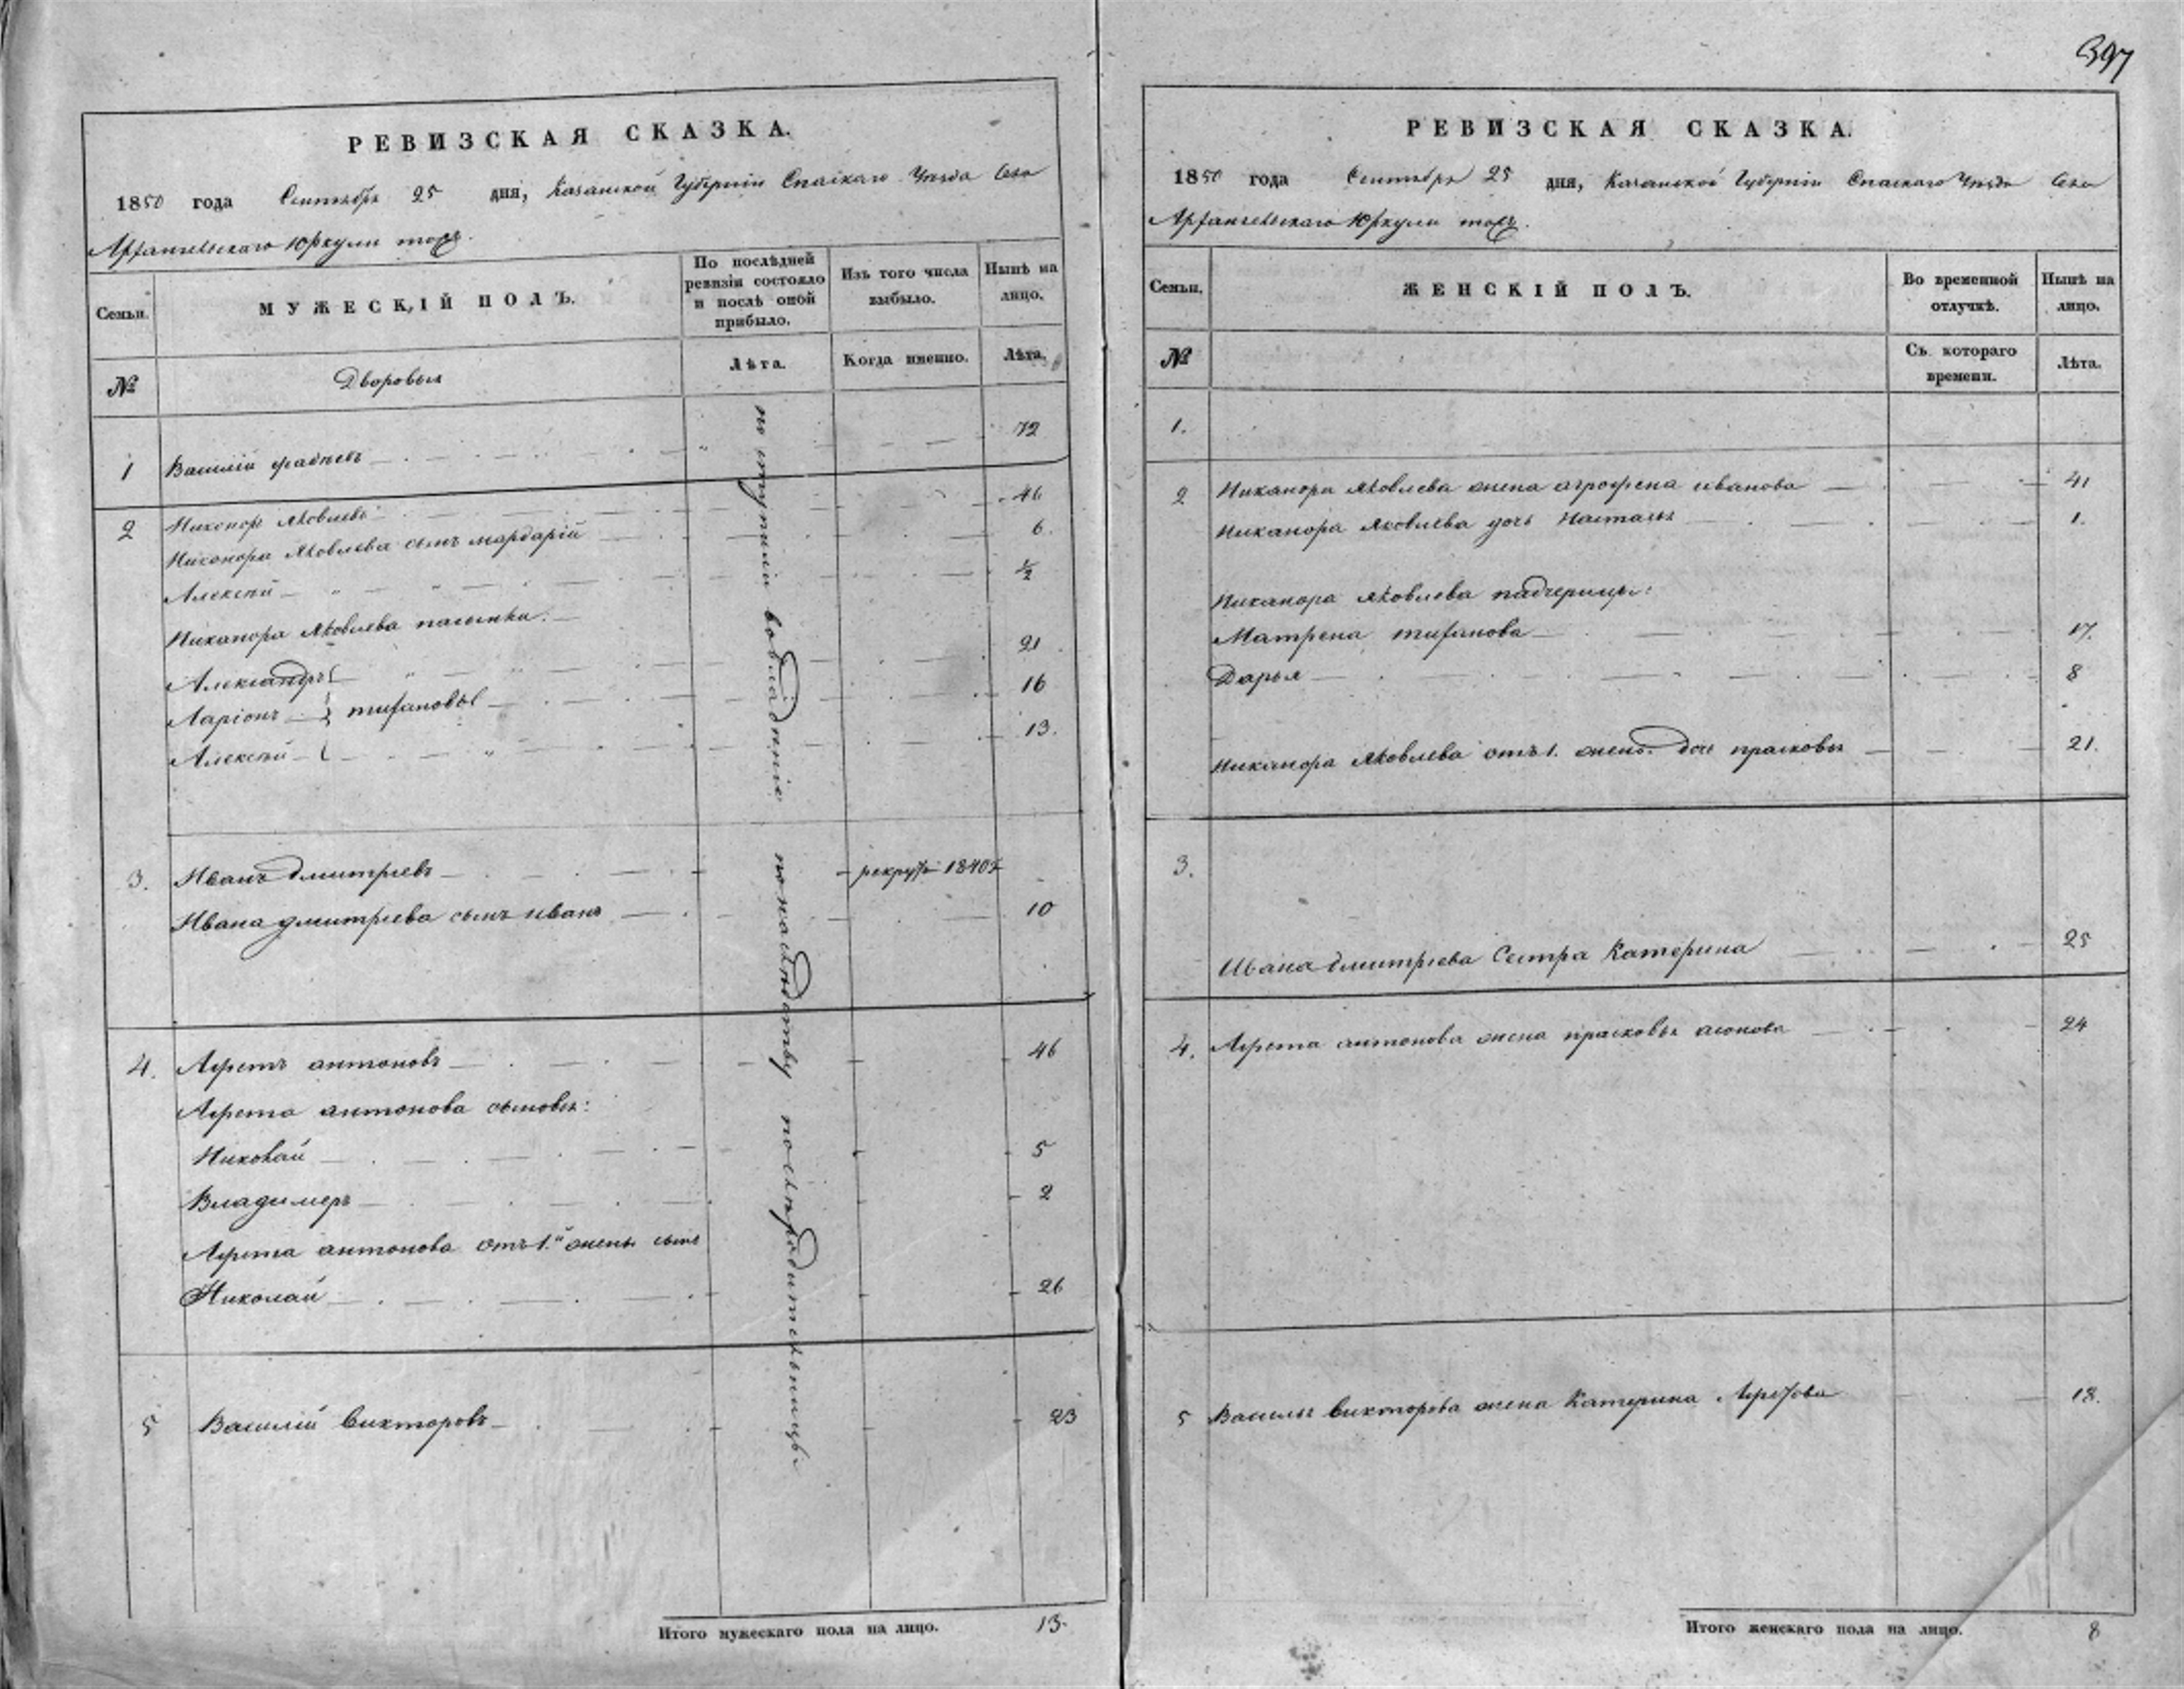 РЕВИЗСКАЯ СКАЗКА.
1850 года Сентября 25 дня, Казанской Губернiи Спаскаго Уезда Села
Архангельскаго Юркули тожъ.
Семьи.
МУЖЕСКIЙ ПОЛЪ.
По послѣдней ревизiи состояло и послѣ оной прибыло.
Изъ того числа выбыло.
Нынѣ на лицо.
№
Дворовыя
Лѣта.
Когда именно.
Лѣта.
1 Василiй 72
2 Никонор Яковлевъ 46
Никонора Яковлева сынъ мардарiй 6
Алексѣй 1/2
Никанора Яковлева пасынки:
Александръ 21
Ларiонъ 16
Алексѣй 13.
3. Иванъ дмитрiевъ рекрутъ 1840
Ивана дмитрiева сынъ иванъ 10
4. Арефъ антоновъ 46
антонова сыновья:
Николай 5
Владимеръ 2
антонова отъ 1.й жены сынъ
Николай 26
5 Василiй Викторовъ 23
по наследству
Итого мужескаго пола на лицо. 13.
397
РЕВИЗСКАЯ СКАЗКА.
1850 года Сентября 25 дня, Казанской Губернiи Спаскаго Уезда Села
Архангельскаго Юркули тожъ.
Семьи.
ЖЕНСКIЙ ПОЛЪ.
Во временной отлучкѣ.
Нынѣ на лицо.
№
Съ котораго времени.
Лѣта.
1.
2 Никанора Яковлева жена агрофена иванова 41
Никанора Яковлева дочь Настасья 1.
Никанора Яковлева падчерицы:
Матрена 17.
Дарья 8
Никанора Яковлева отъ 1. жены дочь прасковья 21.
3.
Ивана дмитрiева Сестра Катерина 25
4. антонова жена прасковья 24
5 Василья Викторова жена Катерина 18.
Итого женскаго пола на лицо. 8